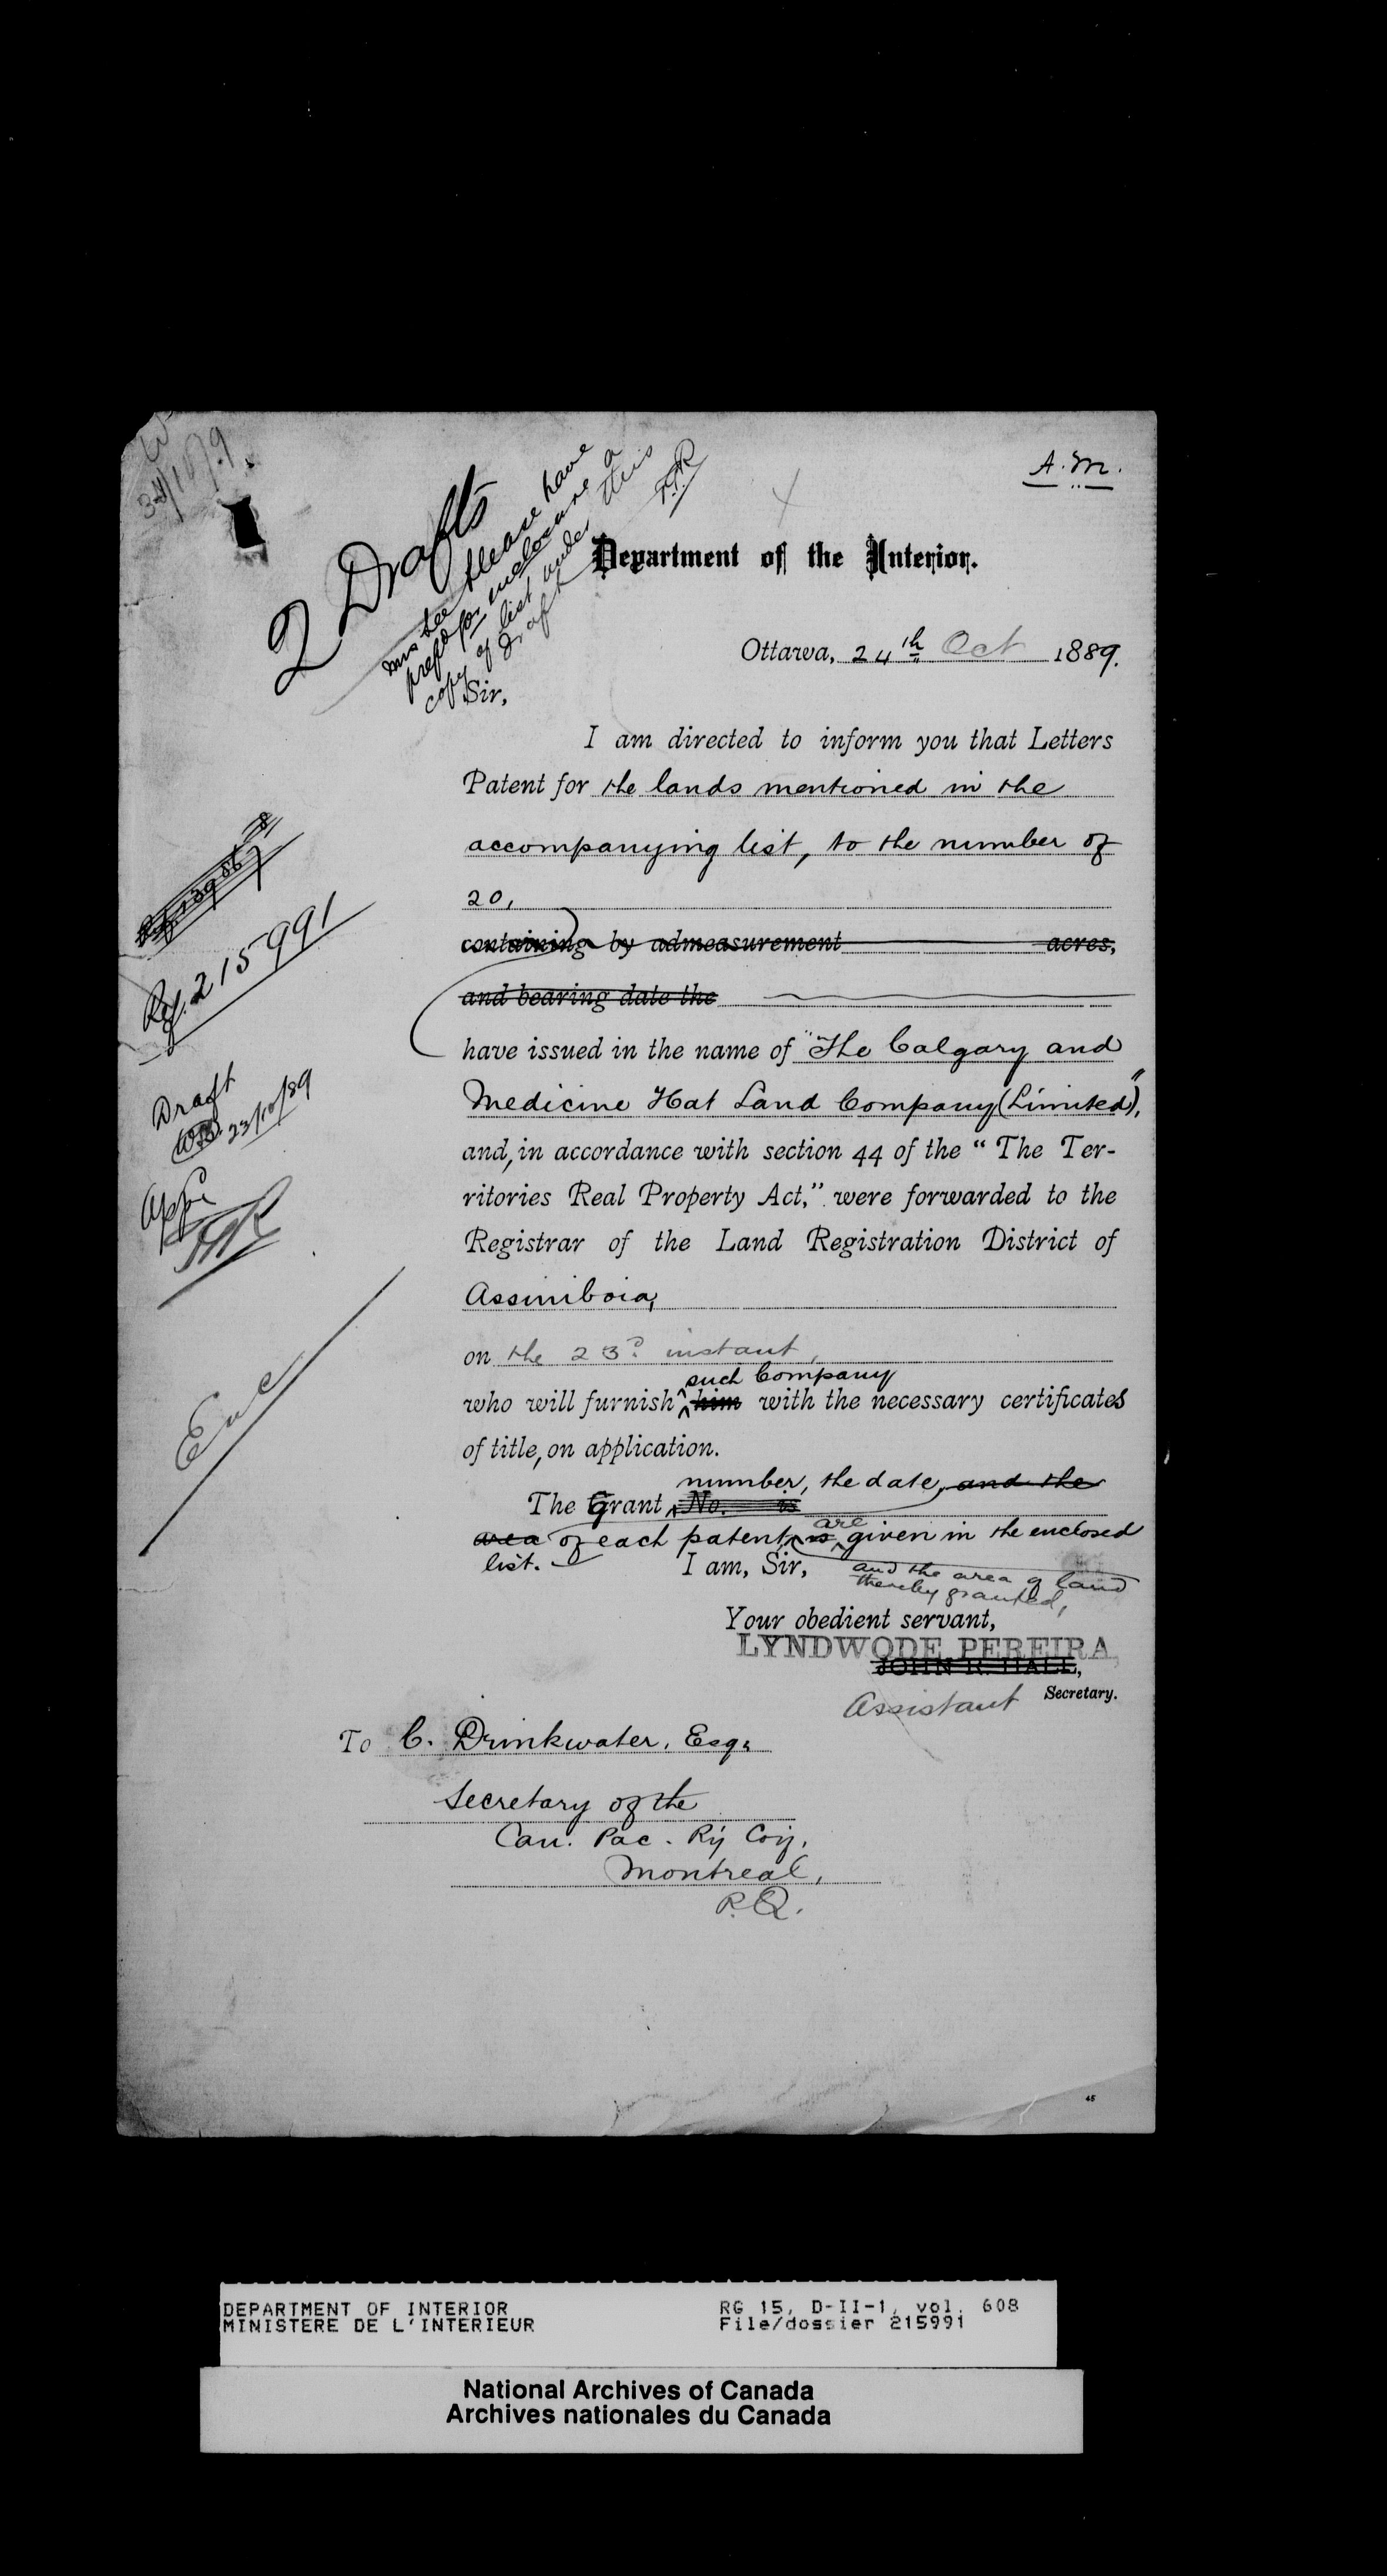 A.M.
2 Drafts
please have
prepd for inclosure a
copy of list under this
draft
Department of the Interior.
Ottawa, 24th Oct 1889.
Sir,
I am directed to inform you that Letters
Patent for the lands mentioned in the
accompanying list, to the number of
20,
containing by admeasurement acres,
and bearing date the
have issued in the name of "The Calgary and
Medicine Hat Land Company (Limited)",
and, in accordance with section 44 of the "The Ter-
ritories Real Property Act," were forwarded to the
Registrar of the Land Registration District of
Assiniboia,
on the 23d instant,
such Company
who will furnish him with the necessary certificates
of title, on application.
number, the date, and the
The Grant No. is
are
area of each patent, is given in the enclosed
list.
I am, Sir,
and the area of land
thereby granted,
Your obedient servant,
LYNDWODE PEREIRA,
JOHN R. HALL,
Assistant Secretary.
To C. Drinkwater, Esq.
Secretary of the
Can. Pac. Ry Coy.
Montreal,
P.Q.
Ref. 215991
Draft
23/10/89
Enc
45
DEPARTMENT OF INTERIOR
MINISTERE DE L'INTERIEUR
RG 15, D-II-1, vol. 608
File/dossier 215991
National Archives of Canada
Archives nationales du Canada